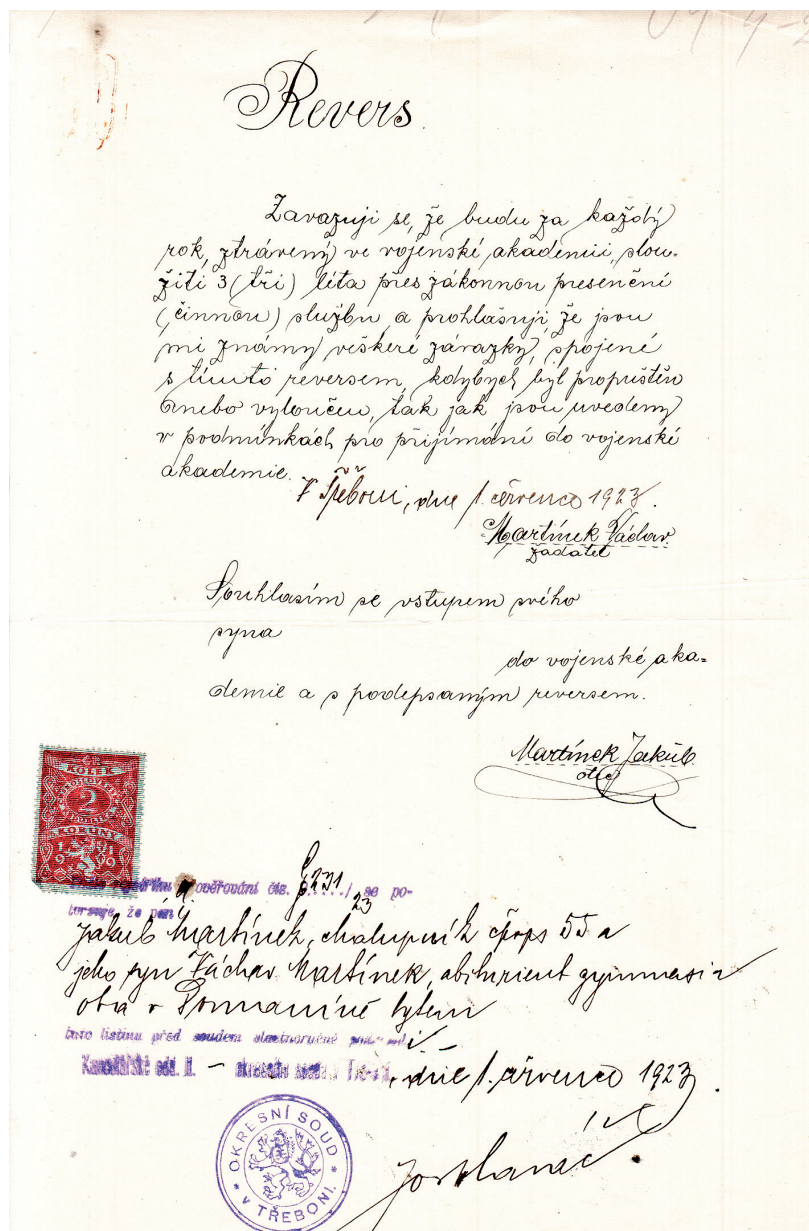 Revers
Zavazuji se, že budu za každý
rok, ztrávený ve vojenské akademii, slou-
žiti 3 (tři) léta přes zákonnou presenční
(činnou) službu, a prohlašuji že jsou
mi známy veškeré závazky, spojené
s tímto reversem, kdybych byl propuštěn
anebo vyloučen, tak jak jsou uvedeny
v podmínkách pro přijímání do vojenské
akademie.
V Třeboni, dne 1. července 1923.
Martínek Václav
žadatel
Souhlasím se vstupem svého
syna
do vojenské aka-
demie a s podepsaným reversem.
Martínek Jakub
otec
KOLEK
2
KORUNY
1919
ověřování čís. 231/23 se po-
tvrzuje, že pan
Jakub Martínek, chalupník čpops 55 a
jeho syn Václav Martínek, abiturient gymnasia
oba v Domaníně bytem
tuto listinu před soudem vlastnoručně
Kancelářské odd. II. dne 1. července 1923
OKRESNÍ SOUD
* V TŘEBONI. *